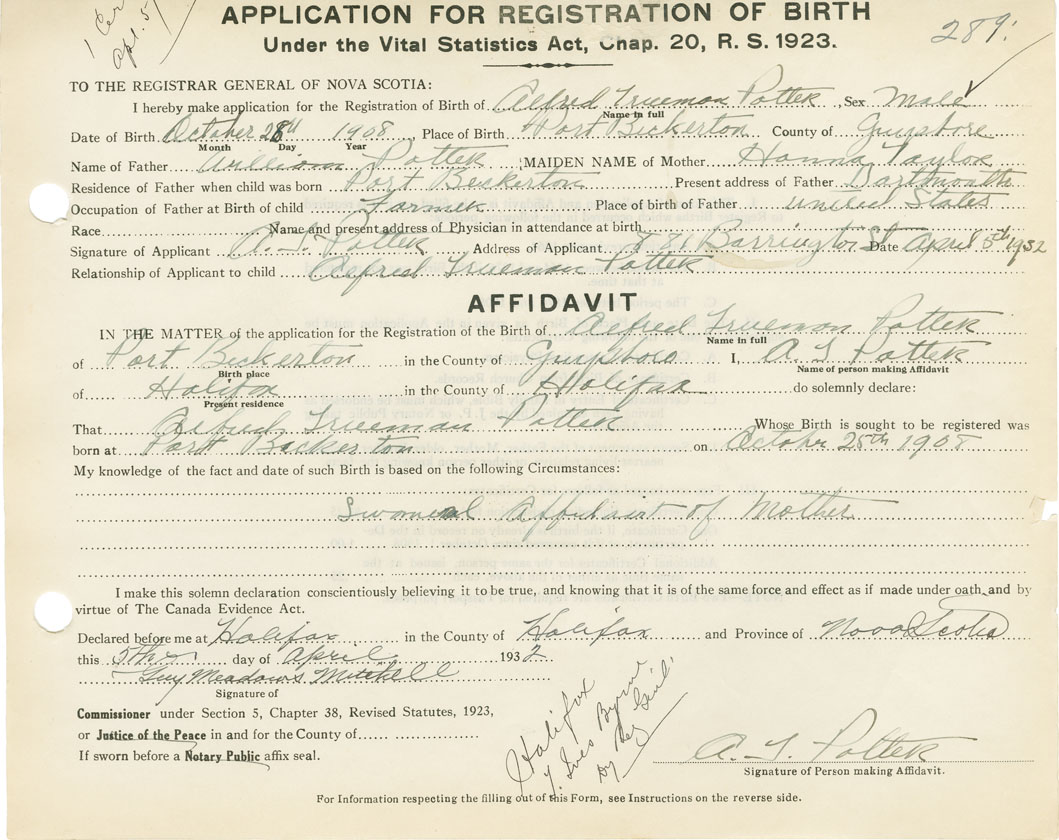 1 Cer
apl. 5/
APPLICATION FOR REGISTRATION OF BIRTH
Under the Vital Statistics Act, Chap. 20, R. S. 1923.
289.
TO THE REGISTRAR GENERAL OF NOVA SCOTIA:
I hereby make application for the Registration of Birth of Alfred Trueman Potter, Sex Male
Name in full
Date of Birth October 28th 1908, Place of Birth Port Bickerton County of Guysboro
Month Day Year
Name of Father William Potter MAIDEN NAME of Mother Hanna Taylor
Residence of Father when child was born Port Beckerton Present address of Father Dartmouth
Occupation of Father at Birth of child Farmer Place of birth of Father United States
Race Name and present address of Physician in attendance at birth
Signature of Applicant A. T. Potter Address of Applicant 81 Barrington St Date April 5th 1932
Relationship of Applicant to child Alfred Trueman Potter
AFFIDAVIT
IN THE MATTER of the application for the Registration of the Birth of Alfred Trueman Potter
Name in full
of Port Bickerton in the County of Guysboro I, A T Potter
Birth place Name of person making Affidavit
of Halifax in the County of Halifax do solemnly declare:
Present residence
That Alfred Trueman Potter Whose Birth is sought to be registered was
born at Port Beckerton on October 28th 1908
My knowledge of the fact and date of such Birth is based on the following Circumstances:
Affidavit of Mother
I make this solemn declaration conscientiously believing it to be true, and knowing that it is of the same force and effect as if made under oath and by
virtue of The Canada Evidence Act.
Declared before me at Halifax in the County of Halifax and Province of Nova Scotia
this 5th day of April 1932
Guy Meadows Mitchell
Signature of
Commissioner under Section 5, Chapter 38, Revised Statutes, 1923,
or Justice of the Peace in and for the County of
If sworn before a Notary Public affix seal.
Halifax
by
A. T. Potter
Signature of Person making Affidavit.
For Information respecting the filling out of this Form, see Instructions on the reverse side.